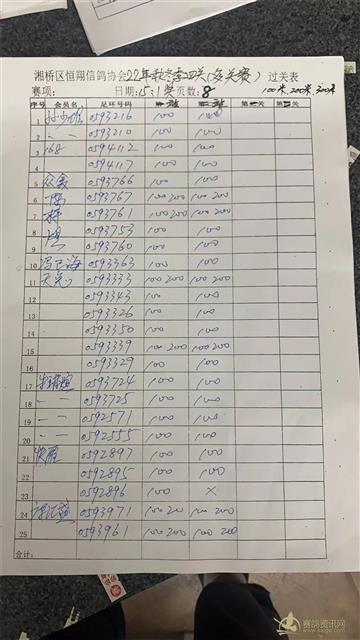 湘桥区恒翔信鸽协会22年秋冬季四关(多关赛)过关表
赛项: 日期:5:1 页数:8 100米,200米,300米
序号 会员名 足环号码 第一关 第二关 第三关 第四关
1 0593216 100 100
2 一一 0593210 100 100
3 168 0594112 100 100
4 0594117 100 100
5 众鑫 0593766 100 100
6 0593767 100 200 100 200
7 0593761 100 200 100 200
8 0593753 100 100
9 0593760 100 100
10 冯卫海 0593363 100 100
11 天亮 0593333 100 200 100 200
12 0593343 100 100
13 0593326 100 100
14 0593350 100 100
15 0593339 100 200 100 200
16 0593329 100 100
17 0593724 100 100
18 一一 0593725 100 100
19 一一 0592571 100 100
20 一一 0592555 100 100
21 0592897 100 100
22 0592895 100 100
23 0592896 100 ×
24 0593971 100 200 100 200
25 0593961 100 200 100 200
合计:
赛鸽资讯网
www.saige.com